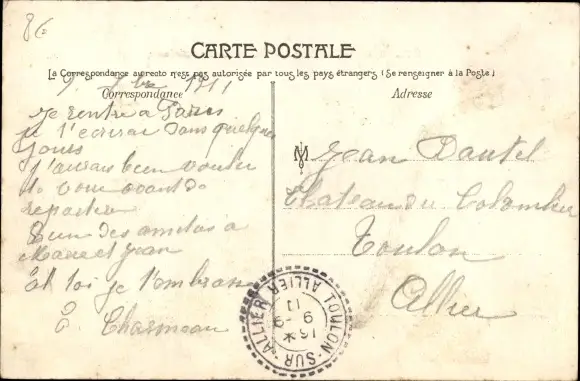 86
CARTE POSTALE
La Correspondance au recto n'est pas autorisée par tous les pays étrangers (Se renseigner à la Poste)
Correspondance
Adresse
9 7bre 1911
Je rentre a Paris
je t'ecrirai dans quelques
jours
J'aurais bien voulu
te voir avant de
repartir
Bien des amities à
Marie et Jean
Et toi je t'embrasse
Charmeau
M Jean Dautel
Chateau du Colombier
Toulon
Allier
TOULON-SUR-ALLIER
ALLIER
16 *
9 -9
11